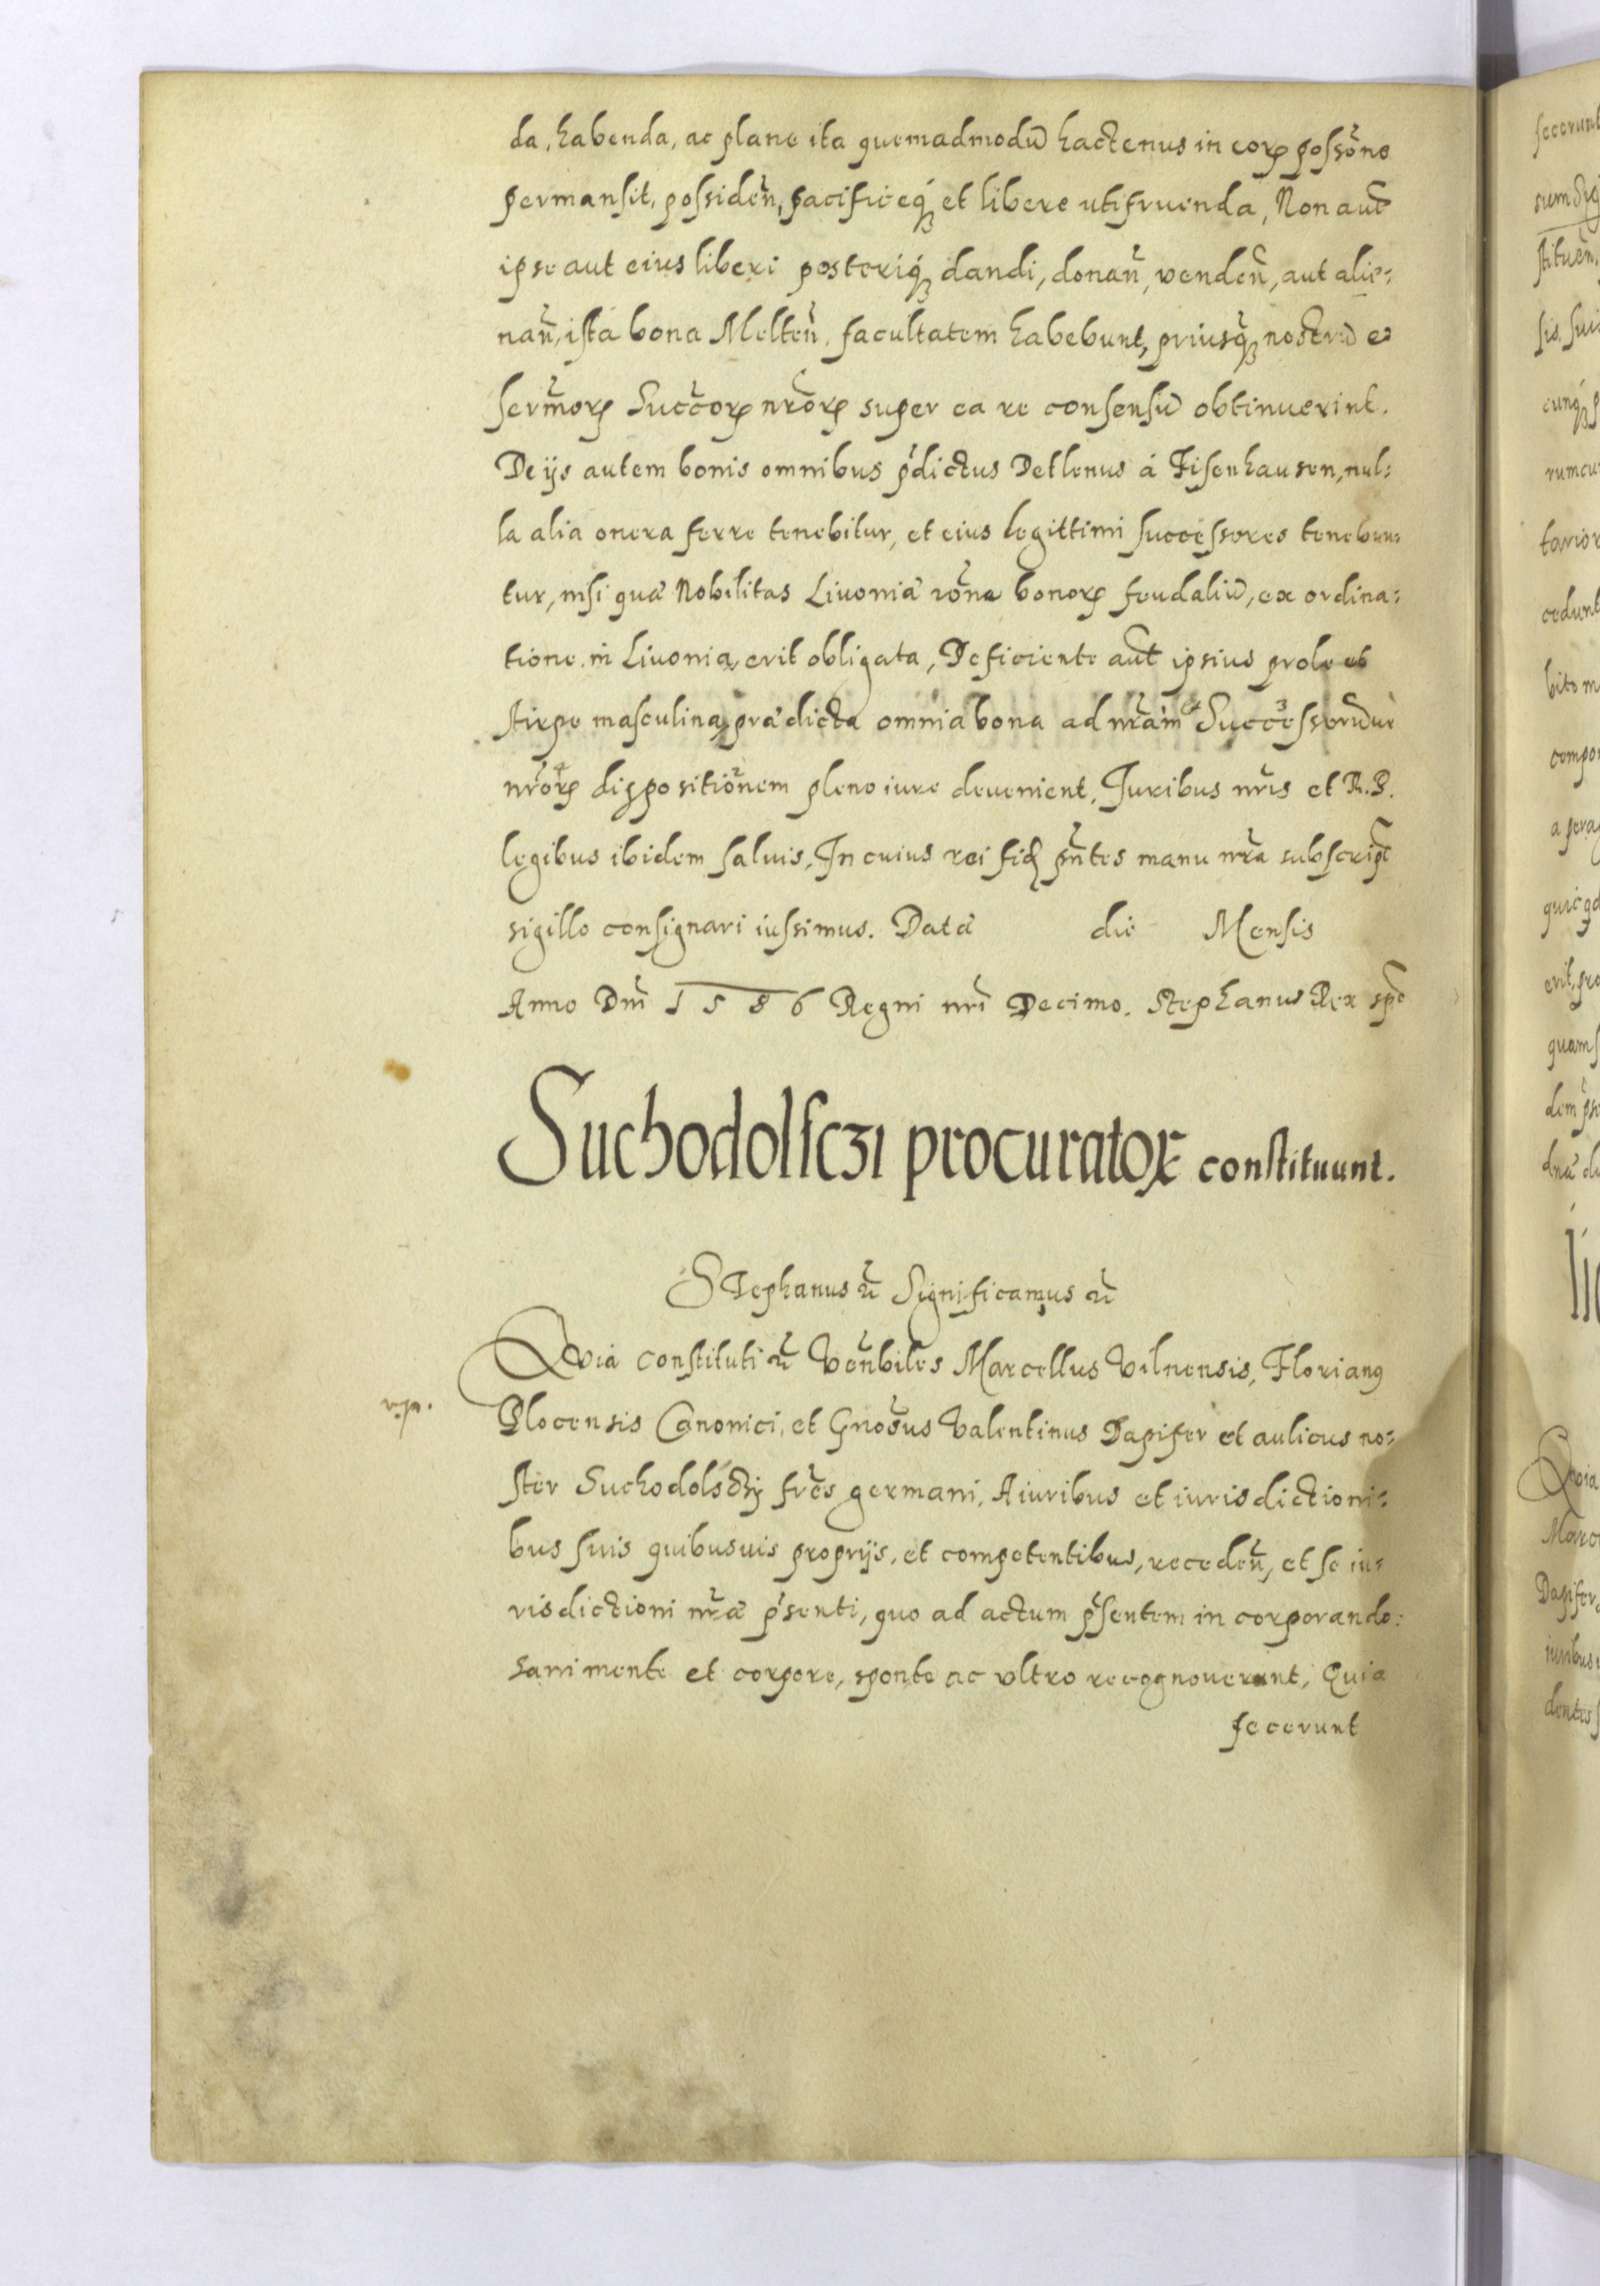 da, habenda, ac plane ita quemadmodũ hactenus in eorꝝ possõne
permansit, possideñ, pacificeqꝫ et libere utifruenda, Non aut̃
ipse aut eius liberi posteriqꝫ dandi, donañ, vendeñ, aut alie=
nañ, ista bona Melteñ. facultatem habebunt, priusqꝫ nostrũ et
serm̃orꝝ Succ̃orꝝ nr̃orꝝ super ea re consensũ obtinuerint.
De ijs autem bonis omnibus p̃dictus Detlenus á Tisenhausen, nul=
la alia onera ferre tenebitur, et eius legittimi successores tenebun=
tur, nisi quæ Nobilitas Livoniæ rõne bonorꝝ feudaliũ, ex ordina=
tione in Livonia, erit obligata, Deficiente aut̃ ipsius prole et
stirpe masculina, prædicta omnia bona ad nr̃am et Successorum
nr̃orꝝ dispositiõnem pleno iure devenient, Juribus nr̃is et R.P.
legibus ibidem salvis, In cuius rei fid pñtes manu nr̃a subscript̃
sigillo consignari iussimus. Datæ die Mensis
Anno Dnĩ 1586 Regni nr̃i Decimo. Stephanus Rex sp̃t
Suchodolsczi procuratorꝝ constituunt.
Stephanus ꝛc̃ Significamus ꝛc̃
Quia constituti ꝛc̃ Veñbiles Marcellus Vilnensis, Florianꝰ
Plocensis Canonici, et Gnõsus Valentinus Dapifer et aulicus no=
ster Suchodolsczy fr̃es germani, A iuribus et iurisdictioni=
bus suis quibusuis proprijs, et competentibus, recedeñ, et se iu=
risdictioni nr̃æ p̃senti, quo ad actum p̃sentem incorporando:
sani mente et corpore, sponte ac ultro recognoverunt, Quia
fecerunt